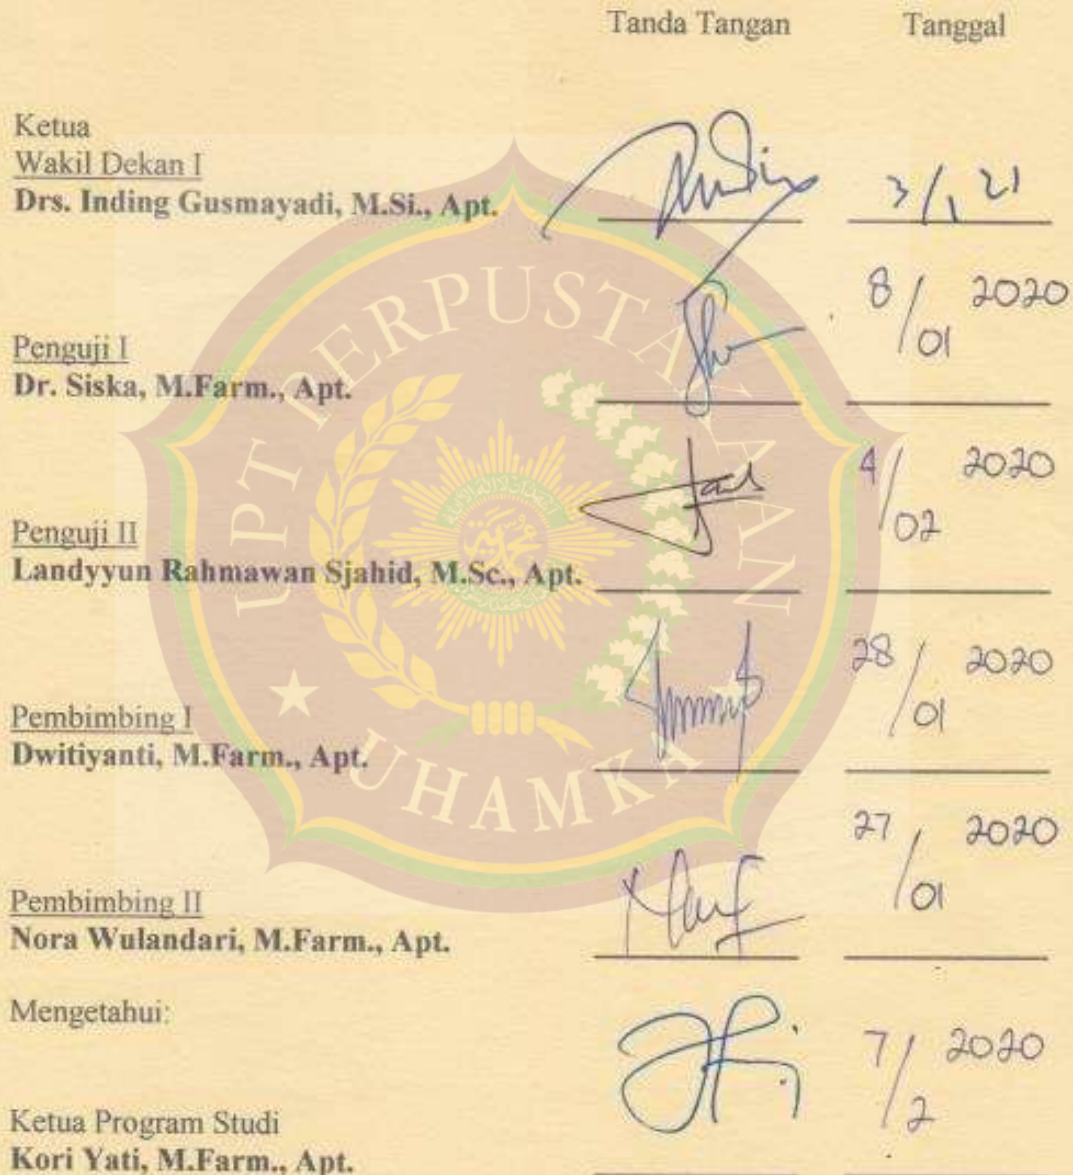 Tanda Tangan Tanggal
Ketua
Wakil Dekan I
Drs. Inding Gusmayadi, M.Si., Apt. 3/1 21
8/01 2020
Penguji I
Dr. Siska, M.Farm., Apt.
4/02 2020
Penguji II
Landyyun Rahmawan Sjahid, M.Sc., Apt.
28/01 2020
Pembimbing I
Dwitiyanti, M.Farm., Apt.
27/01 2020
Pembimbing II
Nora Wulandari, M.Farm., Apt.
Mengetahui:
7/2 2020
Ketua Program Studi
Kori Yati, M.Farm., Apt.
UPT PERPUSTAKAAN
UHAMKA